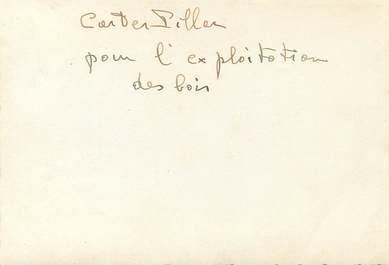 CarterPiller
pour l'exploitation
des bois